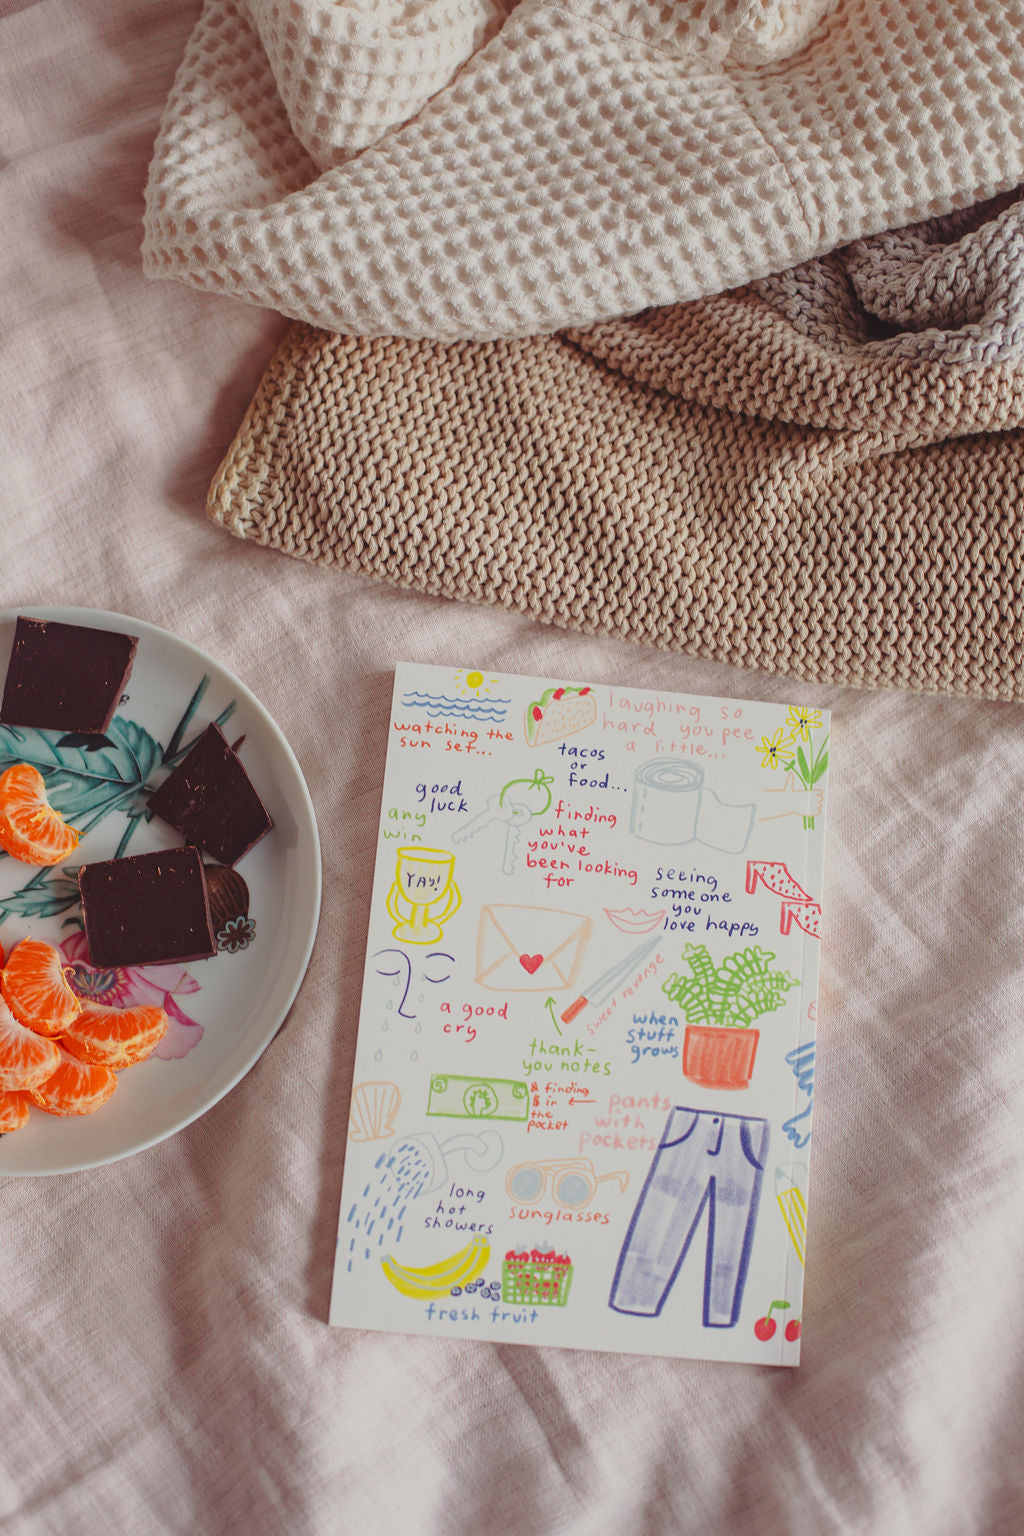 watching the
sun set...
laughing so
hard you pee
a little...
tacos
or
food...
good
luck
any
win
YAY!
finding
what
you've
been looking
for
seeing
someone
you
love happy
sweet revenge
a good
cry
thank-
you notes
when
stuff
grows
$ $
& finding
$ in
the
pocket
pants
with
pockets
long
hot
showers
sunglasses
fresh fruit